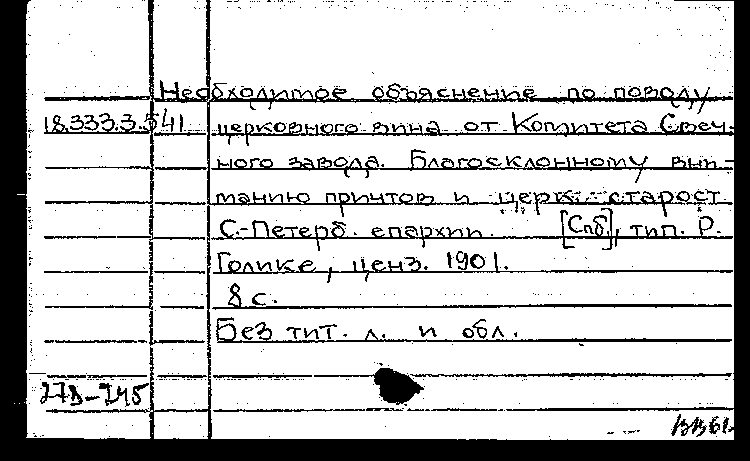 Необходимое объяснение по поводу
18.333.3.541. церковного вина от Комитета Свеч-
ного завода. Благосклонному вни-
манию причтов и церк. старост
С.-Петерб. епархии. [Спб], тип. Р.
Голике, ценз. 1901.
8 с.
Без тит. л. и обл.